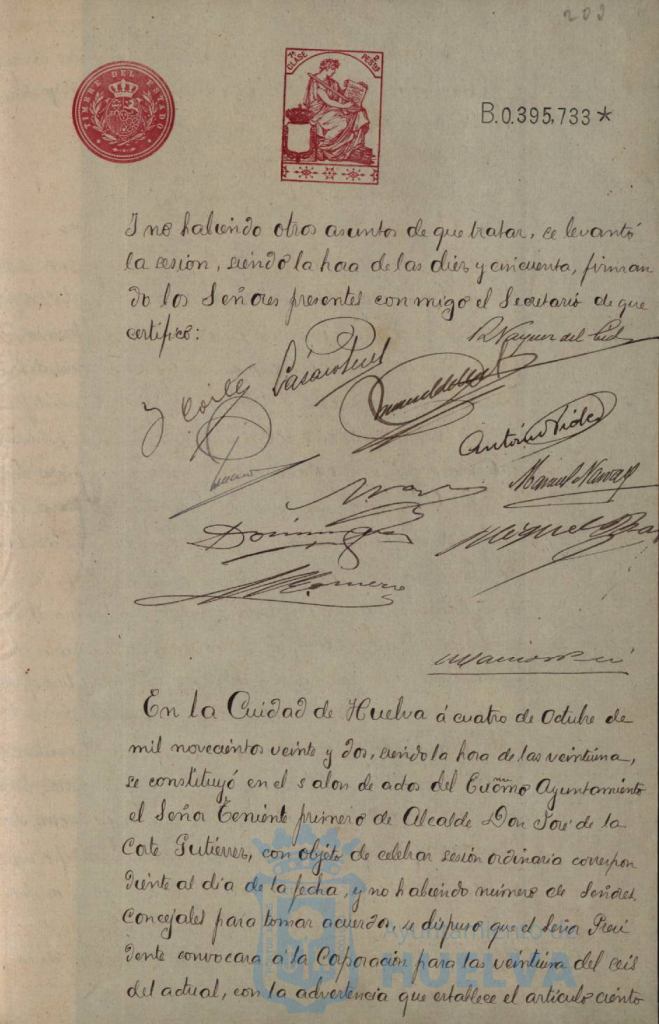 203
TIMBRE DEL ESTADO
7ª CLASE
B.0.395,733 *
Y no habiendo otros asuntos de que tratar, se levantó
la sesión, siendo la hora de las diez y cincuenta, firman
do los Señores presentes conmigo el Secretario de que
certifico:
Antonio
Manuel
Dominguez
Miguel
Romero
En la Cuidad de Huelva á cuatro de Octubre de
mil novecientos veinte y dos, siendo la hora de las veintiuna,
se constituyó en el salon de actos del Ayuntamiento
el Señor Teniente primero de Alcalde Don José de la
Corte Gutiérrez, con objeto de celebrar sesión ordinaria correspon
diente al día de la fecha, y no habiendo número de Señores
Concejales para tomar acuerdo, se dispuso que el Señor Presi
dente convocara a la Corporación para las veintiuna del seis
del actual, con la advertencia que establece el artículo ciento
Ayuntamiento
HUELVA